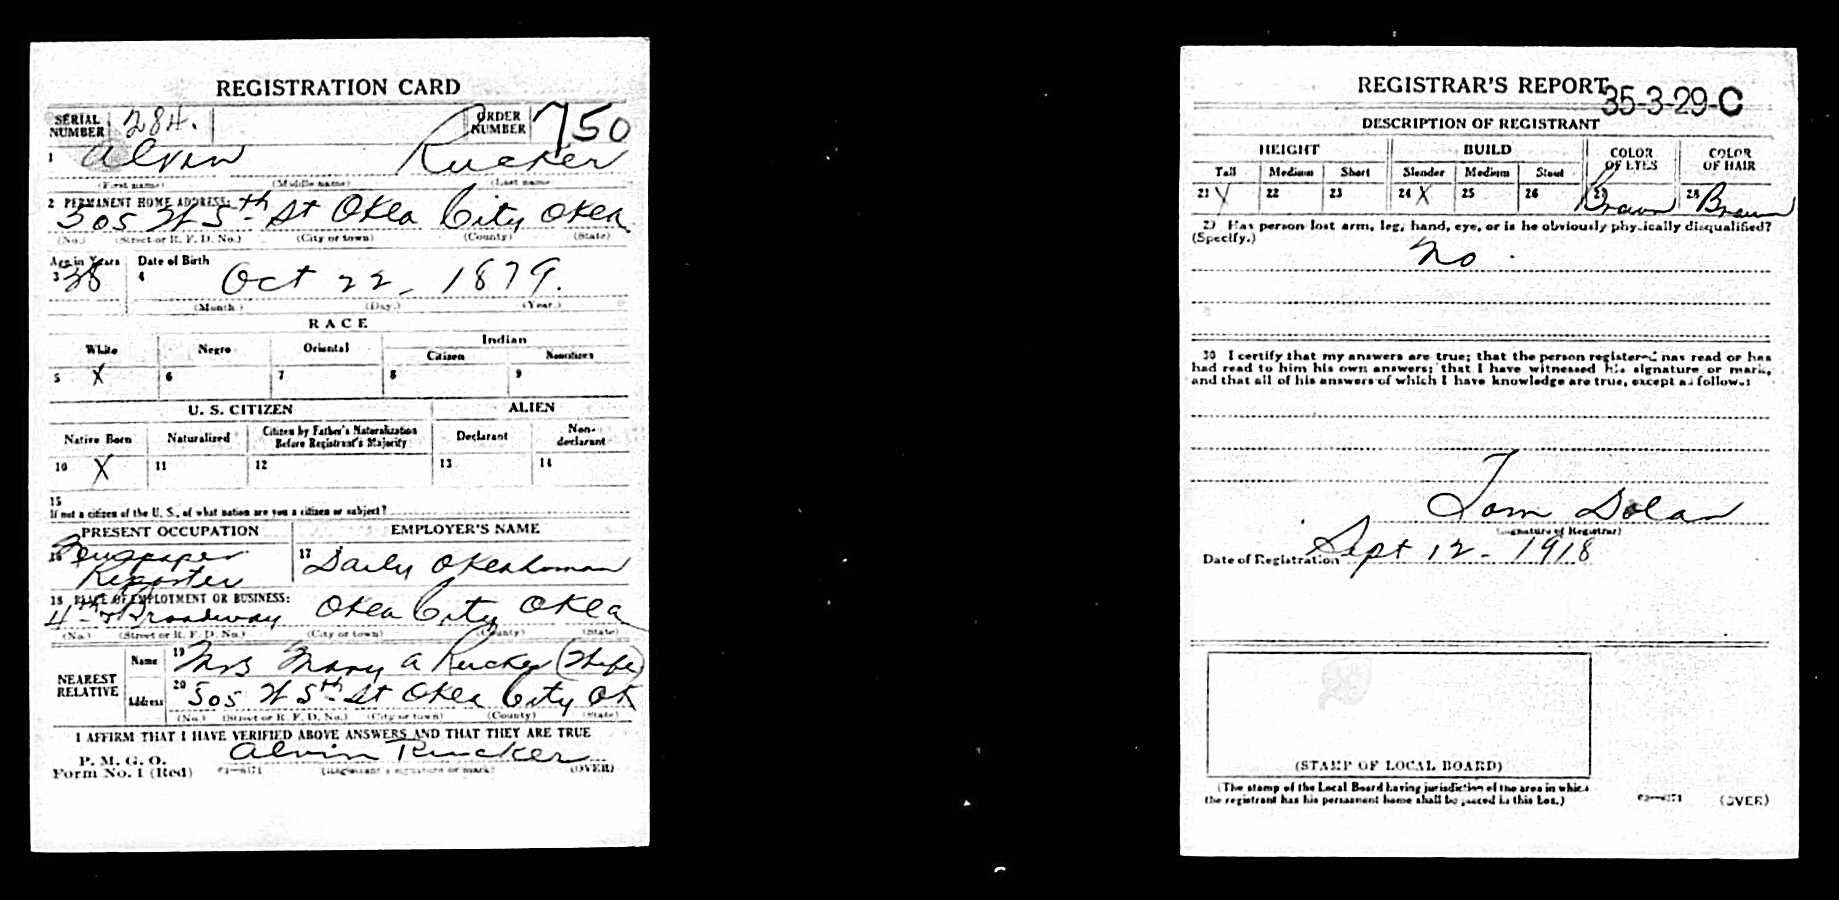 REGISTRATION CARD
SERIAL NUMBER 284. ORDER NUMBER 750
1 Alvin Rucker
(First name) (Middle name) (Last name)
2 PERMANENT HOME ADDRESS:
505 W 5th St Okla City Okla
(No.) (Street or R. F. D. No.) (City or town) (County) (State)
Age in Years Date of Birth
3 38 4 Oct 22 - 1879.
(Month.) (Day.) (Year.)
RACE
White Negro Oriental Indian
Citizen Noncitizen
5 X 6 7 8 9
U. S. CITIZEN ALIEN
Native Born Naturalized Citizen by Father's Naturalization Before Registrant's Majority Declarant Non-declarant
10 X 11 12 13 14
15
If not a citizen of the U. S., of what nation are you a citizen or subject?
PRESENT OCCUPATION EMPLOYER'S NAME
16 Newspaper Reporter 17 Daily Oklahoman
18 PLACE OF EMPLOYMENT OR BUSINESS:
4th & Broadway Okla City Okla
(No.) (Street or R. F. D. No.) (City or town) (County) (State)
NEAREST RELATIVE
Name 19 Mrs Mary A Rucker (Wife)
Address 20 505 W 5th St Okla City Ok
(No.) (Street or R. F. D. No.) (City or town) (County) (State)
I AFFIRM THAT I HAVE VERIFIED ABOVE ANSWERS AND THAT THEY ARE TRUE
P. M. G. O.
Form No. 1 (Red) Alvin Rucker
(Registrant's signature or mark) (OVER)
REGISTRAR'S REPORT
35-3-29-C
DESCRIPTION OF REGISTRANT
HEIGHT BUILD COLOR OF EYES COLOR OF HAIR
Tall Medium Short Slender Medium Stout
21 X 22 23 24 X 25 26 27 Brown 28 Brown
29 Has person lost arm, leg, hand, eye, or is he obviously physically disqualified?
(Specify.)
No.
30 I certify that my answers are true; that the person registered has read or has
had read to him his own answers; that I have witnessed his signature or mark,
and that all of his answers of which I have knowledge are true, except as follows:
Tom Dolan
(Signature of Registrar)
Date of Registration Sept 12 - 1918
(STAMP OF LOCAL BOARD)
(The stamp of the Local Board having jurisdiction of the area in which
the registrant has his permanent home shall be placed in this box.)
(OVER)